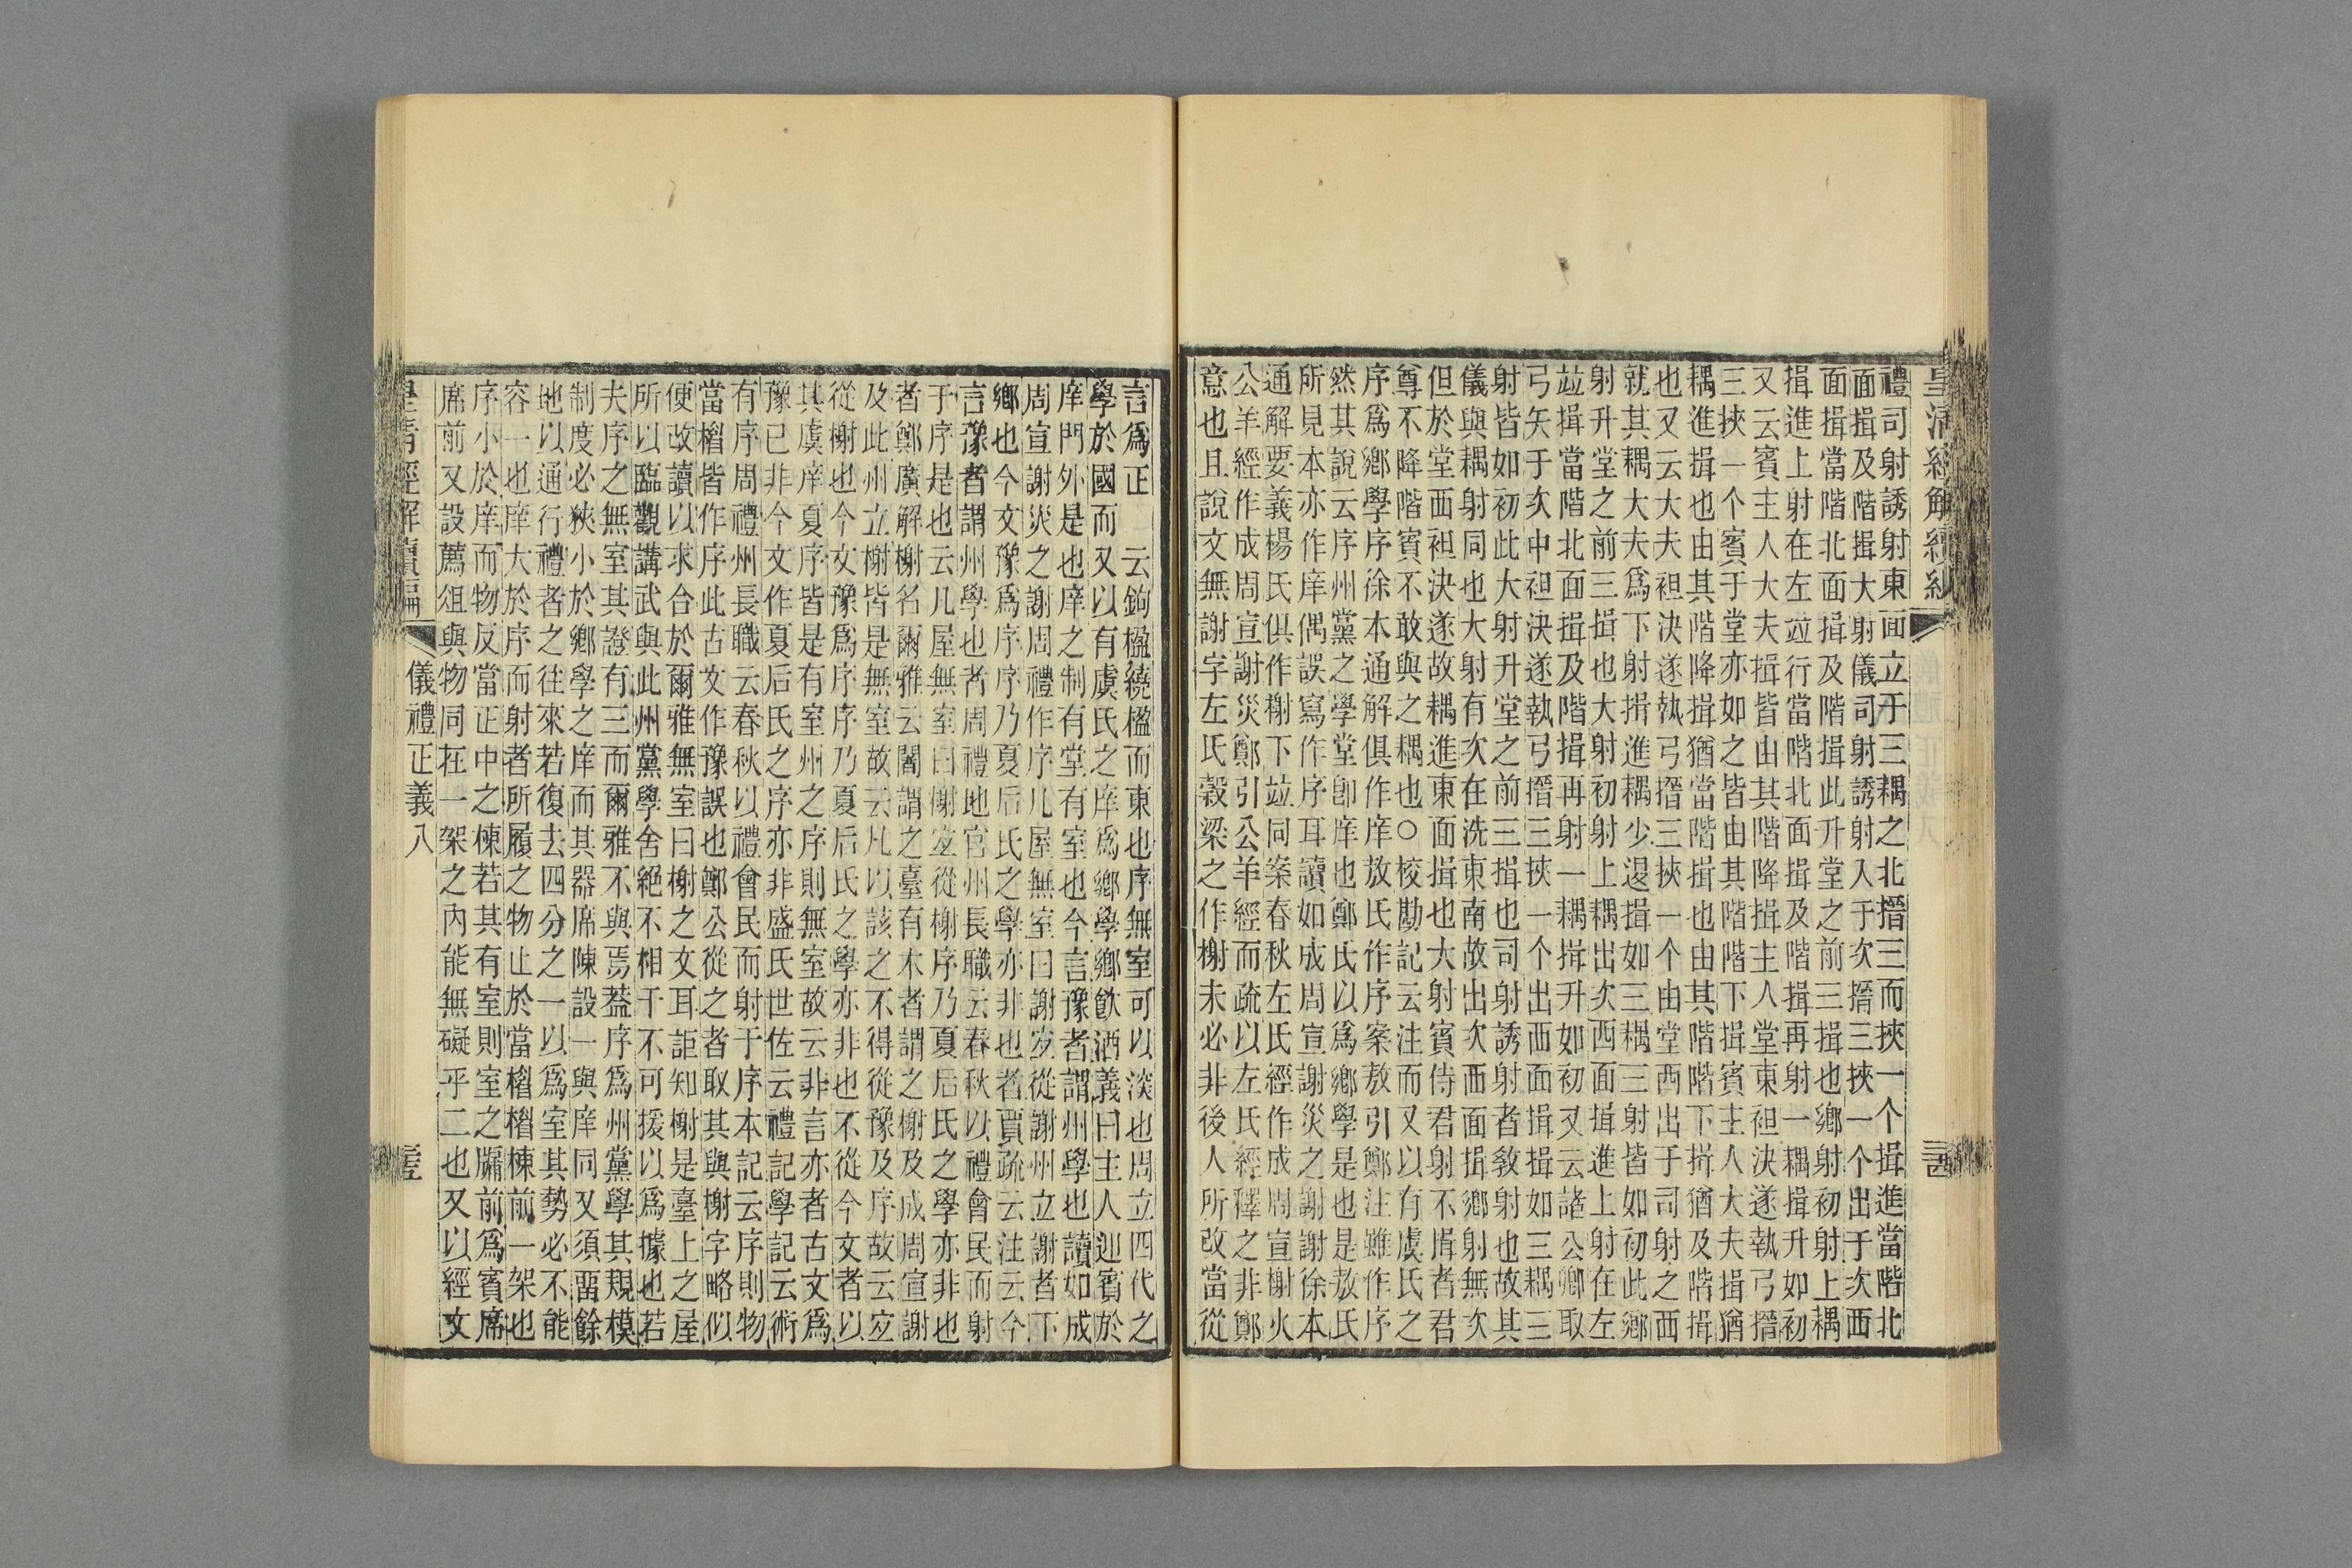 皇清經解續編
三四
禮司射誘射東面立于三耦之北搢三而挾一个揖進當階北
面揖及階揖大射儀司射誘射入于次搢三挾一个出于次西
面揖當階北面揖及階揖此升堂之前三揖也鄉射初射上耦
揖進上射在左竝行當階北面揖及階揖再射一耦揖升如初
又云賓主人大夫揖皆由其階降揖主人堂東袒決遂執弓搢
三挾一个賓于堂亦如之皆由其階階下揖賓主人大夫揖猶
耦進揖也由其階降揖猶當階揖也由其階階下揖猶及階揖
也又云大夫袒決遂執弓搢三挾一个由堂西出于司射之西
就其耦大夫爲下射揖進耦少退揖如三耦三射皆如初此鄉
射升堂之前三揖也大射初射上耦出次西面揖進上射在左
竝揖當階北面揖及階揖再射一耦揖升如初又云諸公卿取
弓矢于次中袒決遂執弓搢三挾一个出西面揖揖如三耦三
射皆如初此大射升堂之前三揖也司射誘射者教射也故其
儀與耦射同也大射有次在洗東南故出次西面揖鄉射無次
但於堂西袒決遂故耦進東面揖也大射賓侍君射不揖者君
尊不降階賓不敢與之耦也○校勘記云注而又以有虞氏之
序爲鄉學序徐本通解俱作庠敖氏作序案敖引鄭注雖作序
然其說云序州黨之學堂卽庠也鄭氏以爲鄉學是也是敖氏
所見本亦作庠偶誤寫作序耳讀如成周宣謝災之謝謝徐本
通解要義楊氏俱作榭下竝同案春秋左氏經作成周宣榭火
公羊經作成周宣謝災鄭引公羊經而疏以左氏經釋之非鄭
意也且說文無謝字左氏穀梁之作榭未必非後人所改當從
言爲正　云鉤楹繞楹而東也序無室可以淡也周立四代之
學於國而又以有虞氏之庠爲鄉學鄉飲酒義曰主人迎賓於
庠門外是也庠之制有堂有室也今言豫者謂州學也讀如成
周宣謝災之謝周禮作序凡屋無室曰謝宐從謝州立謝者下
鄉也今文豫爲序序乃夏后氏之學亦非也者賈疏云注云今
言豫者謂州學也者周禮地官州長職云春秋以禮會民而射
于序是也云凡屋無室曰榭宐從榭序乃夏后氏之學亦非也
者鄭廣解榭名爾雅云闍謂之臺有木者謂之榭及成周宣謝
及此州立榭皆是無室故云凡以該之不得從豫及序故云宐
從榭也今文豫爲序序乃夏后氏之學亦非也不從今文者以
其虞庠夏序皆是有室州之序則無室故云非言亦者古文爲
豫已非今文作夏后氏之序亦非盛氏世佐云禮記學記云術
有序周禮州長職云春秋以禮會民而射于序本記云序則物
當楣皆作序此古文作豫誤也鄭公從之者取其與榭字略似
便改讀以求合於爾雅無室曰榭之文耳詎知榭是臺上之屋
所以臨觀講武與此州黨學舍絕不相干不可援以爲據也若
夫序之無室其證有三而爾雅不與焉葢序爲州黨學其規模
制度必狹小於鄉學之庠而其器席陳設一與庠同又須畱餘
地以通行禮者之往來若復去四分之一以爲室其勢必不能
容一也庠大於序而射者所履之物止於當楣楣棟前一架也
序小於庠而物反當正中之棟若其有室則室之牖前爲賓席
席前又設薦俎與物同在一架之內能無礙乎二也又以經文
皇清經解續編
儀禮正義八